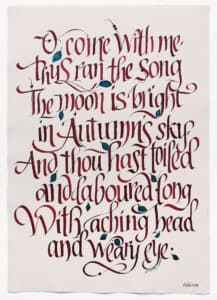 O come with me
thus ran the song
The moon is bright
in Autumns sky
And thou hast toiled
and laboured long
With aching head
and weary eye.